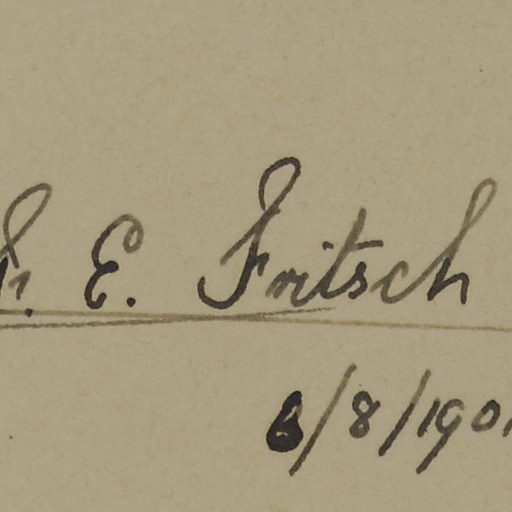 F. E. Fritsch
6/8/1901